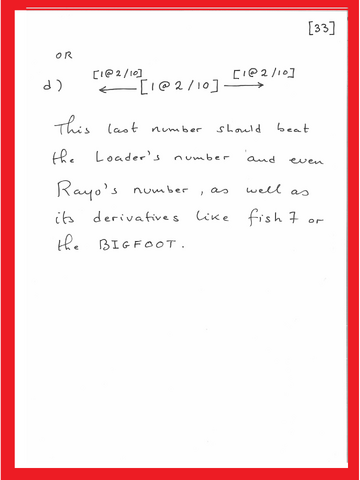 [33]
OR
[1@2/10] [1@2/10]
d) ←[1@2/10]→
This last number should beat
the Loader's number and even
Rayo's number, as well as
its derivatives like fish 7 or
the BIGFOOT.